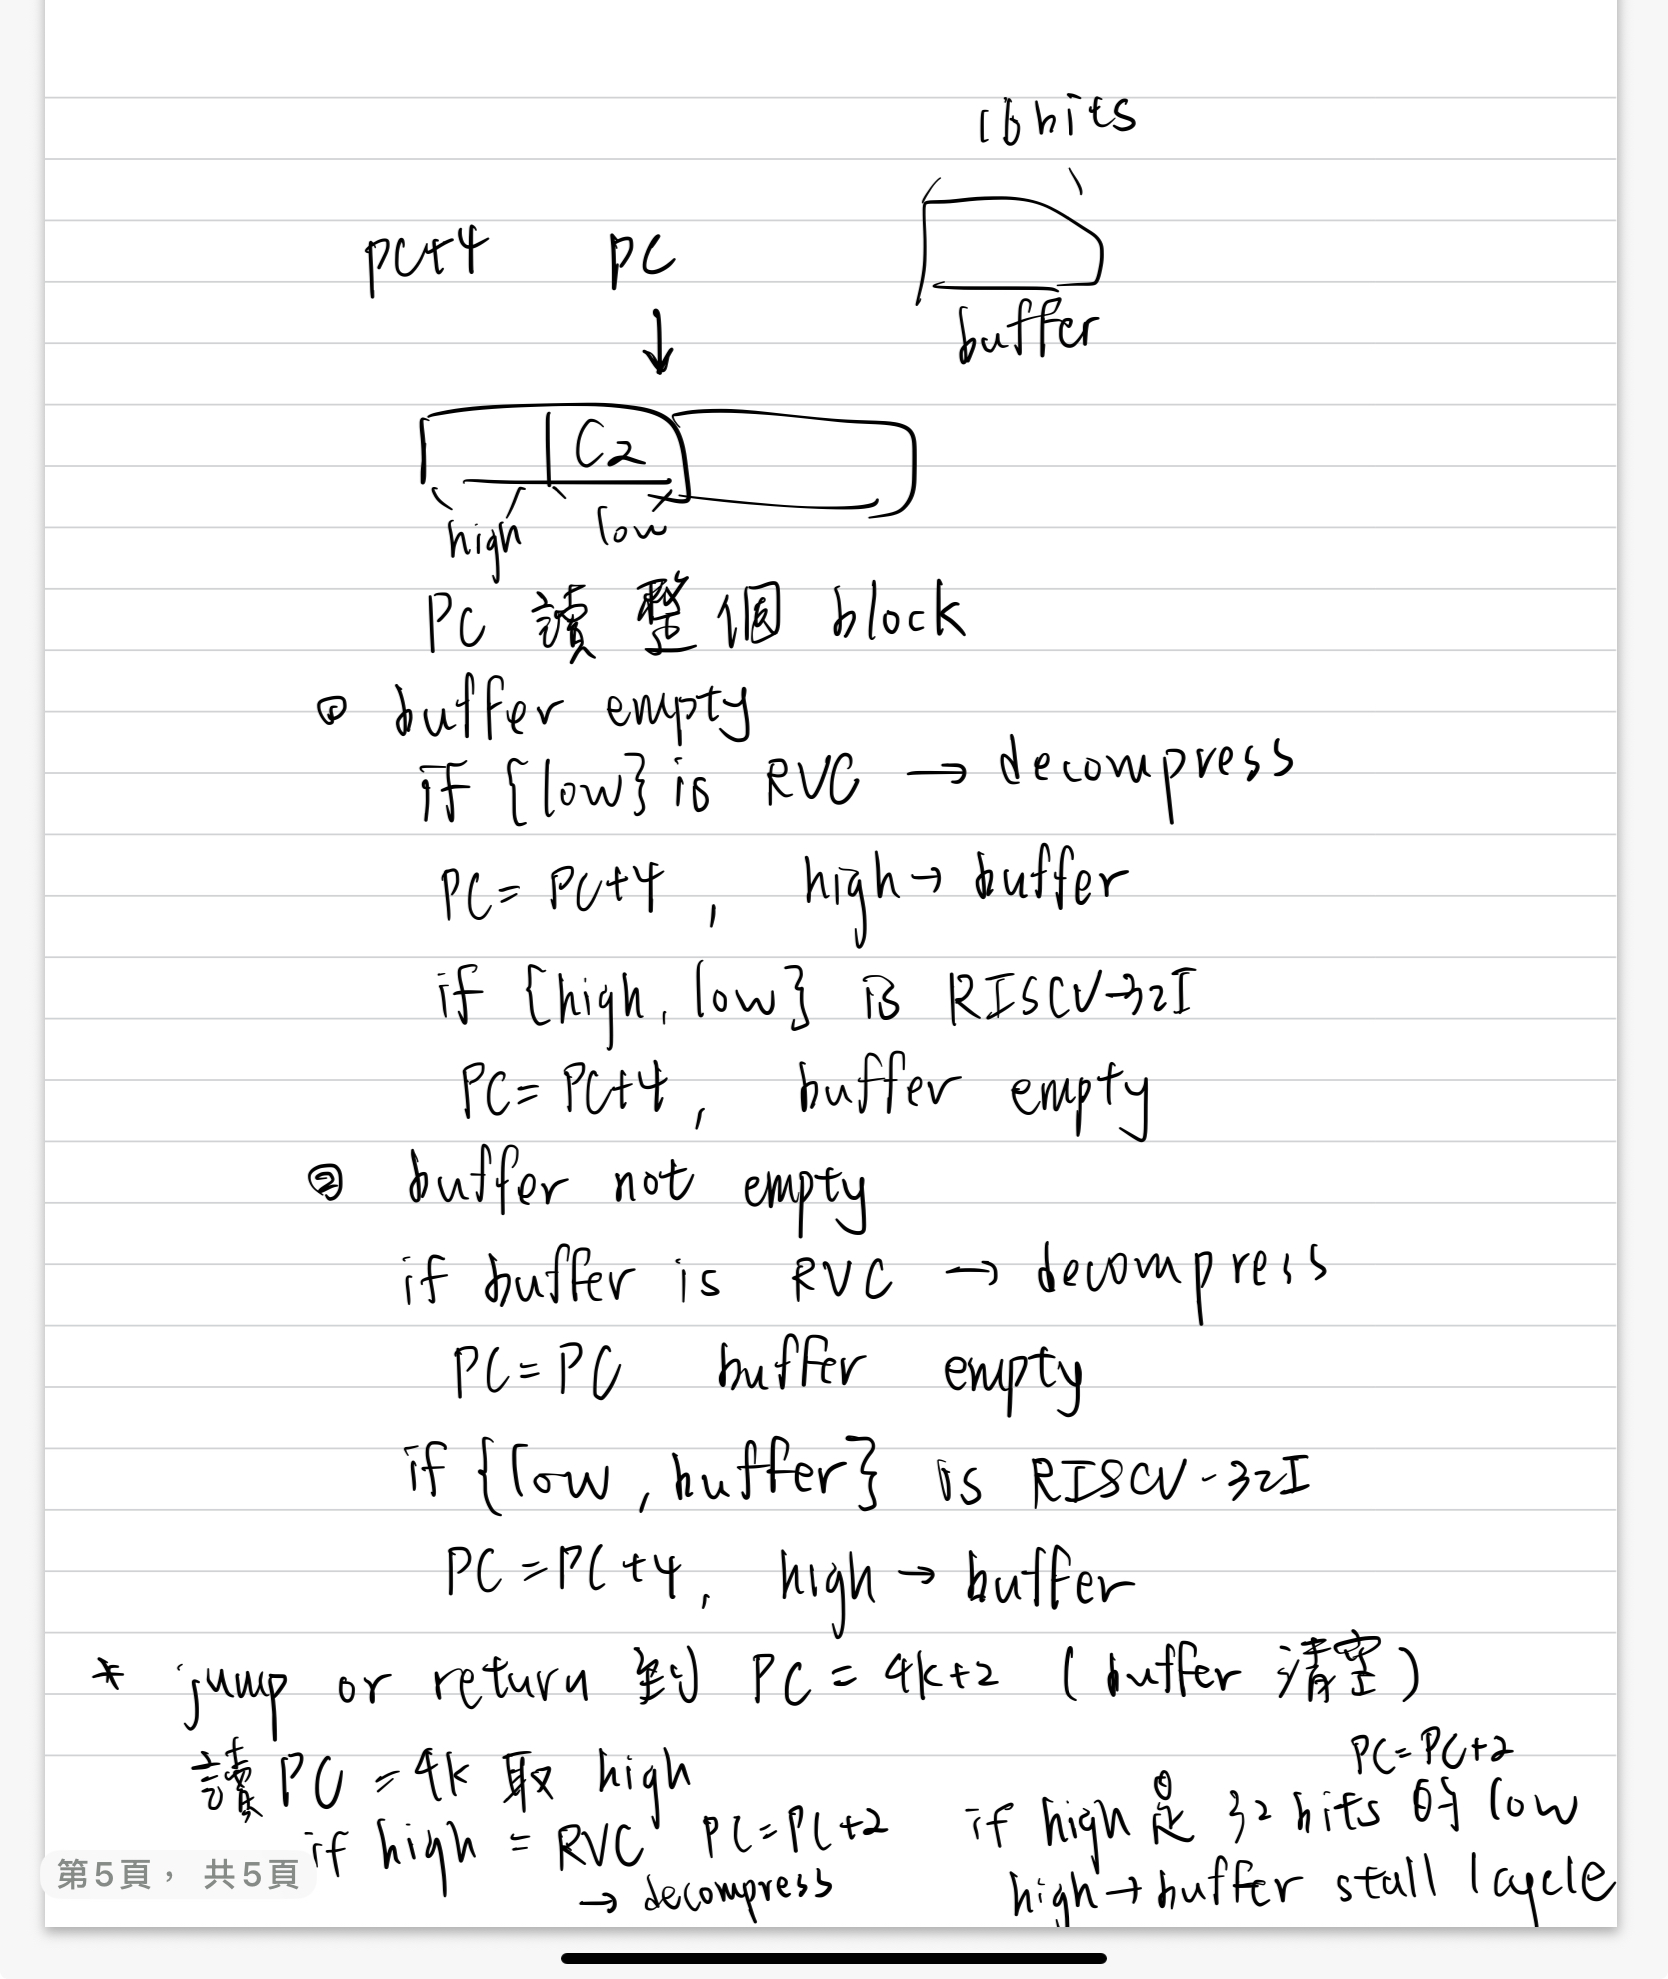 16 bits
PC+4 PC
buffer
C2
high low
PC 讀 整個 block
① buffer empty
if {low} is RVC → decompress
PC = PC+4 , high → buffer
if {high, low} is RISCV-32I
PC = PC+4 , buffer empty
② buffer not empty
if buffer is RVC → decompress
PC = PC buffer empty
if {low , buffer} is RISCV-32I
PC = PC+4 , high → buffer
* jump or return 到 PC = 4k+2 ( buffer 清空 )
讀 PC = 4k 取 high
PC = PC+2
if high = RVC PC = PC+2 if high 是 32 bits 的 low
→ decompress high → buffer stall 1 cycle
第5頁， 共5頁